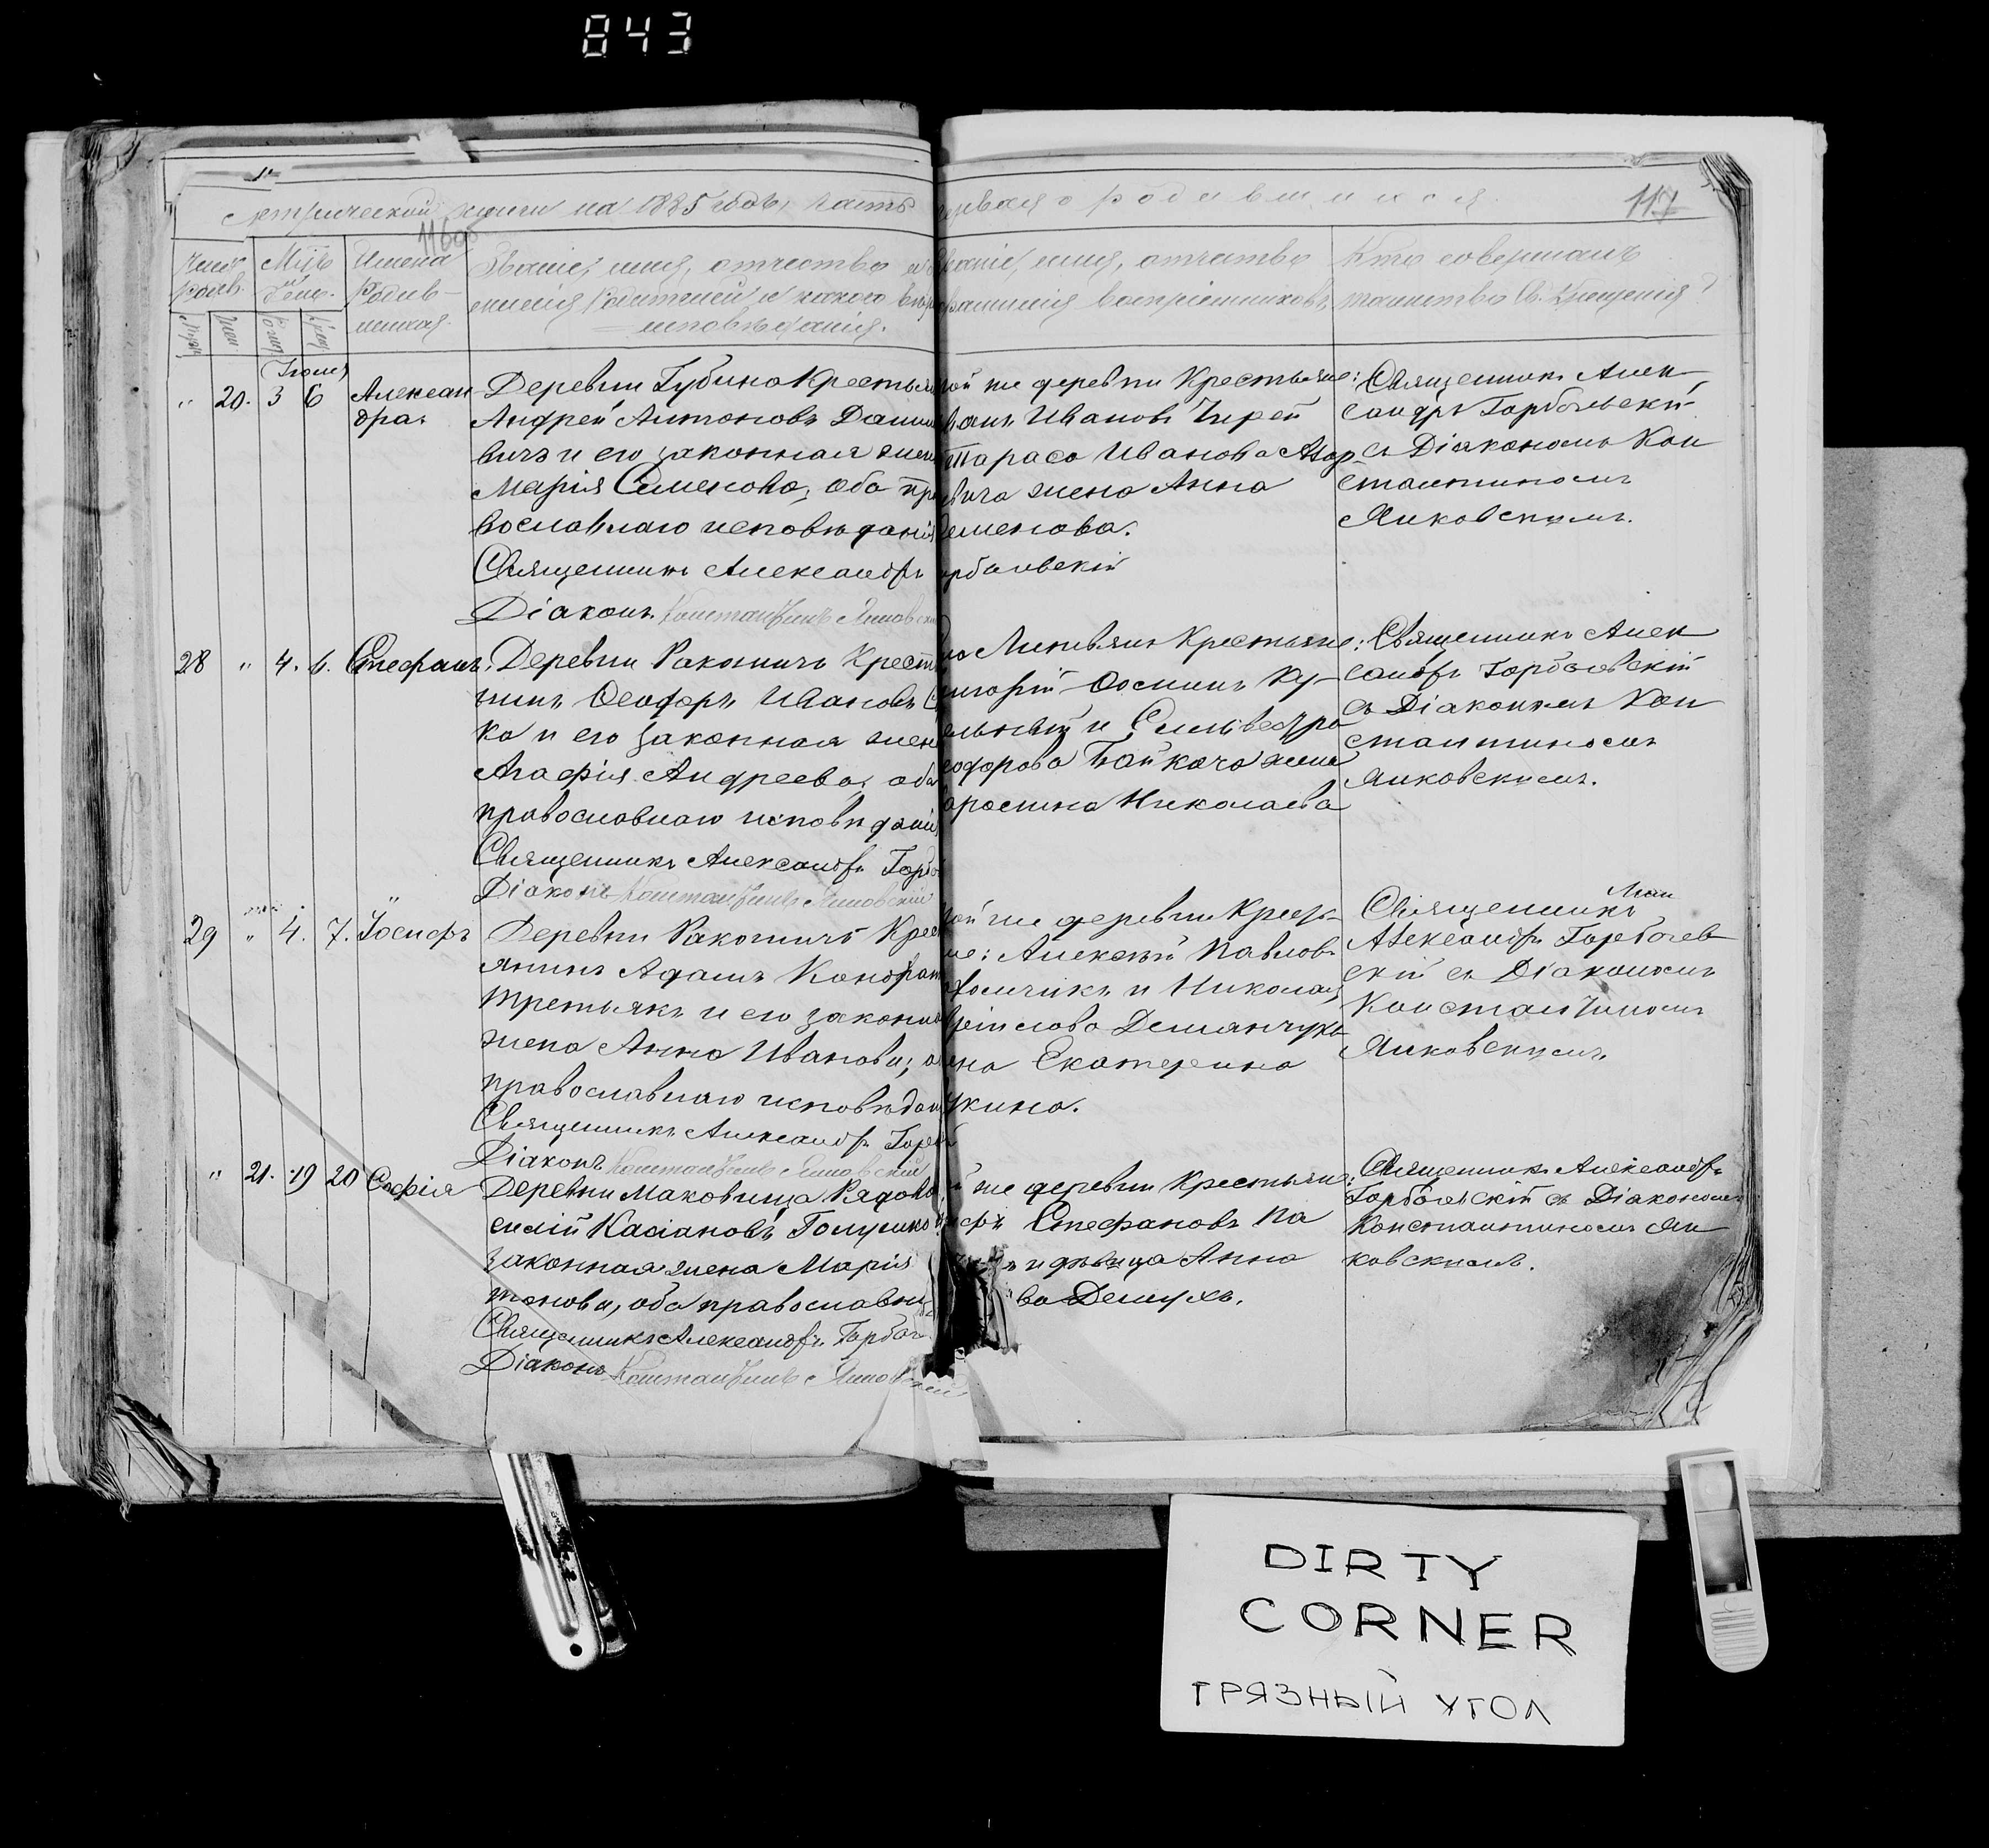 843
метрической книги на 1885 годъ, часть первая о родившихся.
117
1160об
Имена Родив-шихся.
Званіе, имя, отчество
исповѣданія.
Званіе, имя, отчество
фамилія воспріемниковъ.
Кто совершалъ
таинство Св. Крещенія?
Іюня
" 20. 3 6 Алексан
дра.
Деревни Губино Крестья
Андрей Антоновъ Дани
вичъ и его законная жен
Марія Семенова, оба пра
вославнаго исповѣданія
Священникъ Александръ
Діаконъ Константинъ Янковскі
той же деревни Крестьяне:
Иванъ Ивановъ
Тараса Иванова
вича жена Анна
Семенова.
орбачевскій
Священникъ Алек
сандръ Горбачевскій
съ Діакономъ Кон
стантиномъ
Янковскимъ.
28 " 4. 6. Стефанъ.
Деревни Раковичъ Крест
нинъ Ѳеодоръ Ивановъ
ка и его законная жен
Агафія Андреева, оба
православнаго исповѣданія
Священникъ Александръ Горбо
Діаконъ Константинъ Янковскій
Крестьяне:
игорій Осиповъ Ку-
ельный и Сильвестра
еодорова Байкача жена
Николаева
Священникъ Алек
сандръ Горбачевскій
съ Діакономъ Кон
стантиномъ
Янковскимъ.
29 " 4. 7. Іосифъ
Деревни Раковичъ Крес
янинъ Адамъ Кондрат
Третьякъ и его законна
жена Анна Иванова, о
православнаго исповѣдан
Священникъ Александръ Горб
Діаконъ Константинъ Янковскій
той же деревни Кресть-
не: Алексѣй Павловъ
и Николая
Демянчука
ена Екатерина
Священникъ
Александръ Горбачев
скій съ Діакономъ
Константиномъ
Янковскимъ.
" 21. 19 20 Софія
Деревни Маковища Рядово
силій Касіановъ
законная жена Марія
тонова, оба православн
Священникъ Александръ Горбач
Діаконъ Константинъ Янковскій
й же деревни Крестьяне:
Стефановъ Па
и дѣвица Анна
ва Демчухъ.
Священникъ Александръ
Горбачевскій съ Діакономъ
Константиномъ Ян
ковскимъ.
DIRTY
CORNER
ГРЯЗНЫЙ УГОЛ